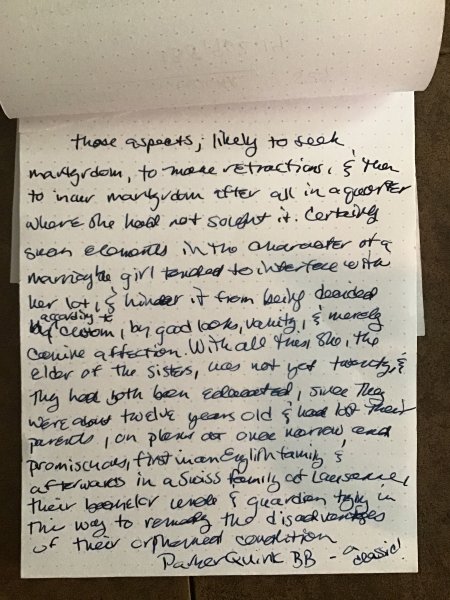 those aspects; likely to seek
martyrdom, to make retractions, & then
to incur martyrdom after all in a quarter
where she had not sought it. Certainly
such elements in the character of a
marriagble girl tended to interfere with
her lot, & hinder it from being decided
according to
by custom, by good looks, vanity, & merely
canine affection. With all this, she, the
elder of the sisters, was not yet twenty, &
they had both been educated, since they
were about twelve years old & had lost their
parents, on plans at once narrow and
promiscuous, first in an English family &
afterwards in a Swiss family at Lausanne,
their bachelor uncle & guardian trying in
this way to remedy the disadvantages
of their orphaned condition
Parker Quink BB - a classic!